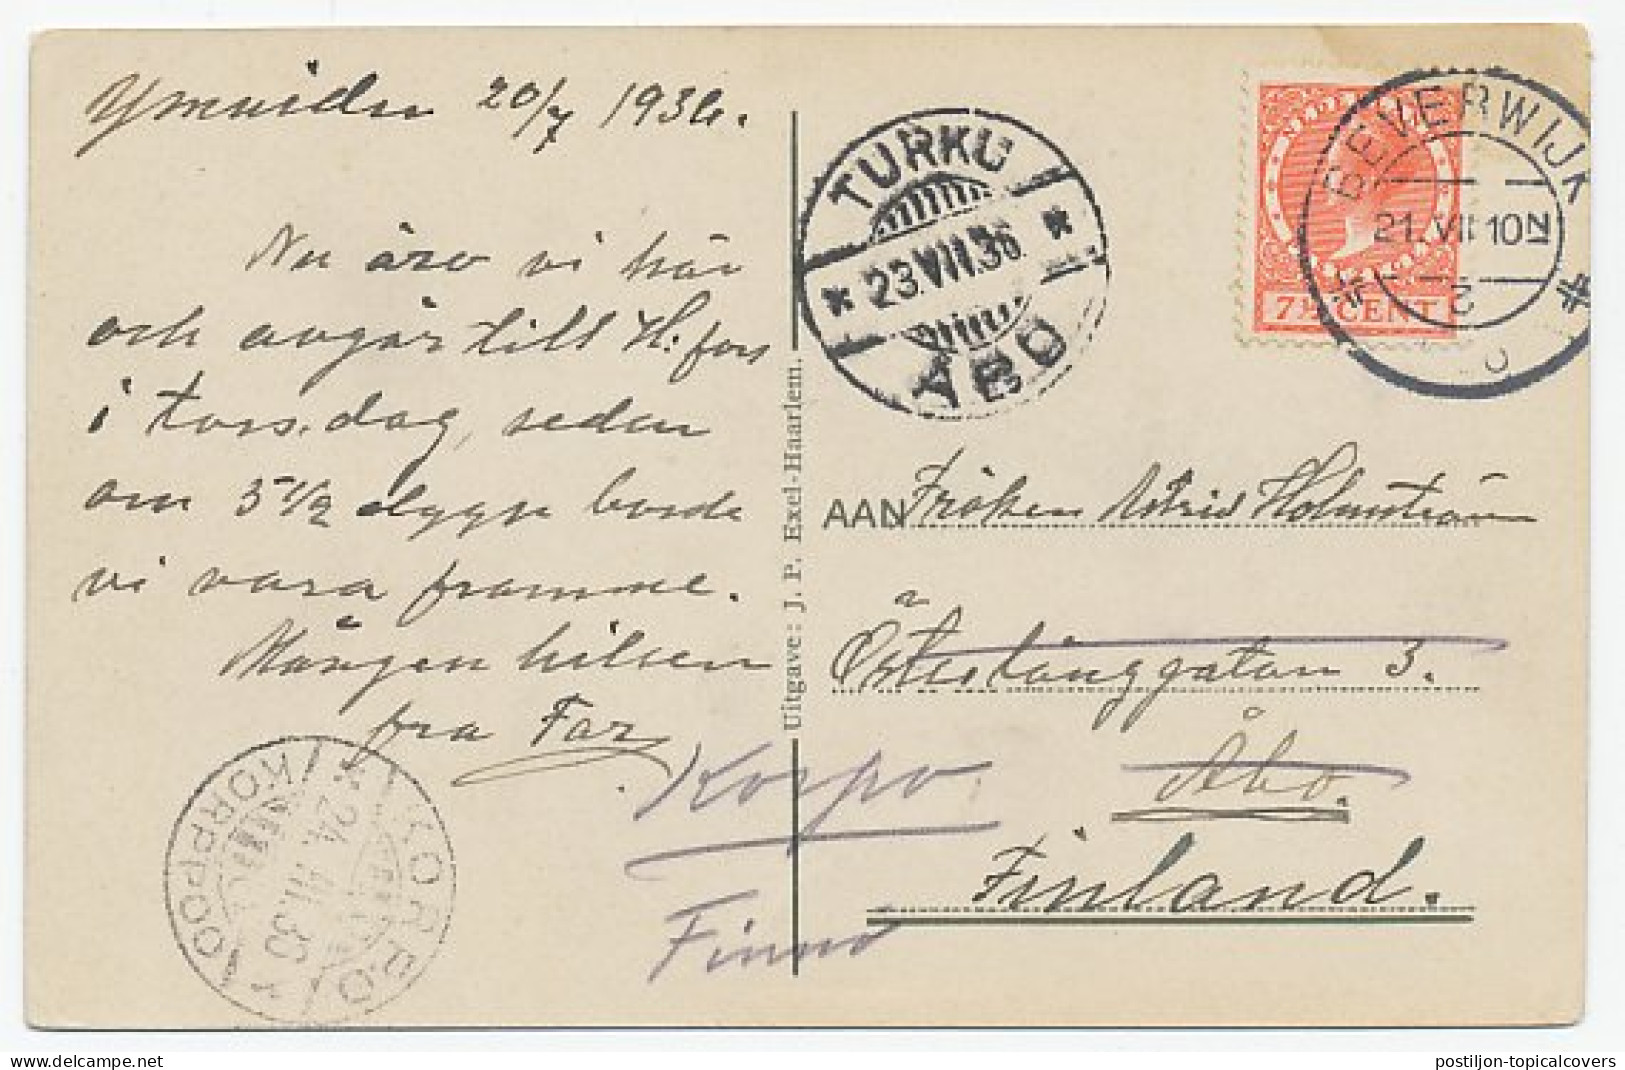 Ymuiden 20/7 1936.
Nu äro vi här
och avgår till H:fors
i torsdag, sedan
om 5 1/2 dygn borde
vi vara framme.
Mången hilsen
fra Far
Uitgave: J. P. Exel-Haarlem.
TURKU
* 23.VII.36 *
ÅBO
BEVERWIJK
21.VII 10 N
7½ CENT
AAN Fröken Astrid Holmström
Österlånggatan 3.
Åbo.
Finland.
Korpo
Finnö
KORPO
24.VII.36
KORPPOO
delcampe.net
postiljon-topicalcovers